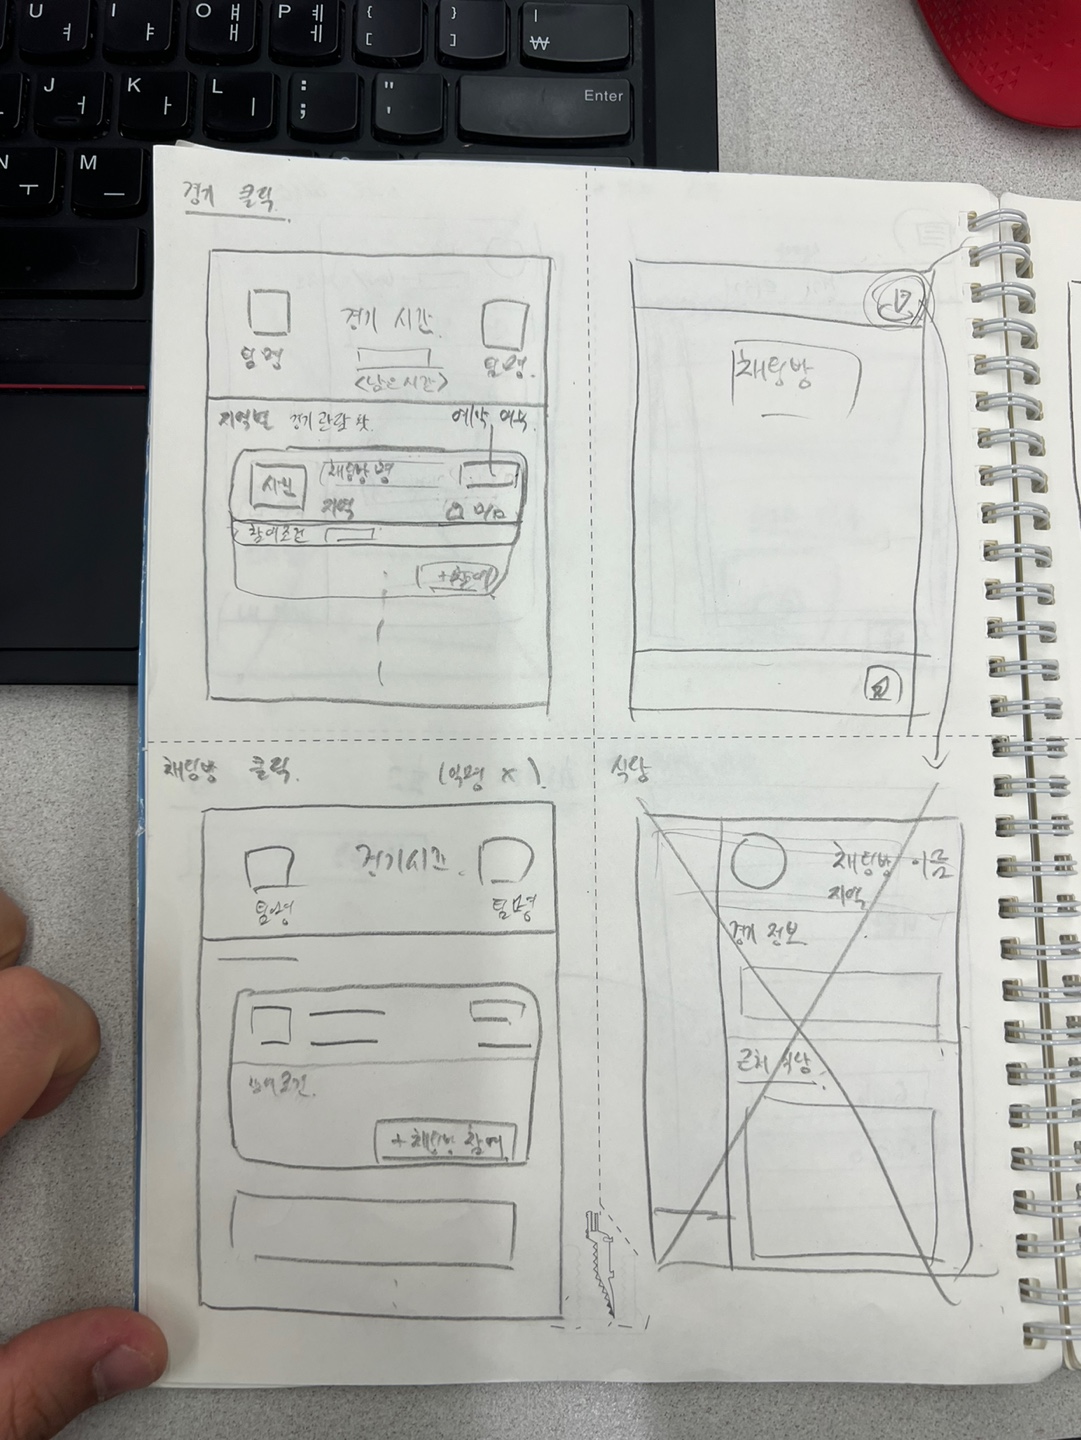 U ㅕ
I ㅑ
O ㅒ ㅐ
P ㅖ ㅔ
{ [
} ]
| ₩
J ㅓ
K ㅏ
L ㅣ
: ;
" '
Enter
N ㅜ
M ㅡ
경기 클릭
경기 시간
팀명
팀명
<남은시간>
지역별 경기 관람 팟
예약 여부
사진
채팅방명
지역
참여조건
+참여
채팅방
채팅방 클릭
(익명 X)
경기시간
팀명
팀명
참여조건
+ 채팅방 참여
식당
채팅방 이름
지역
경기 정보
근처 식당